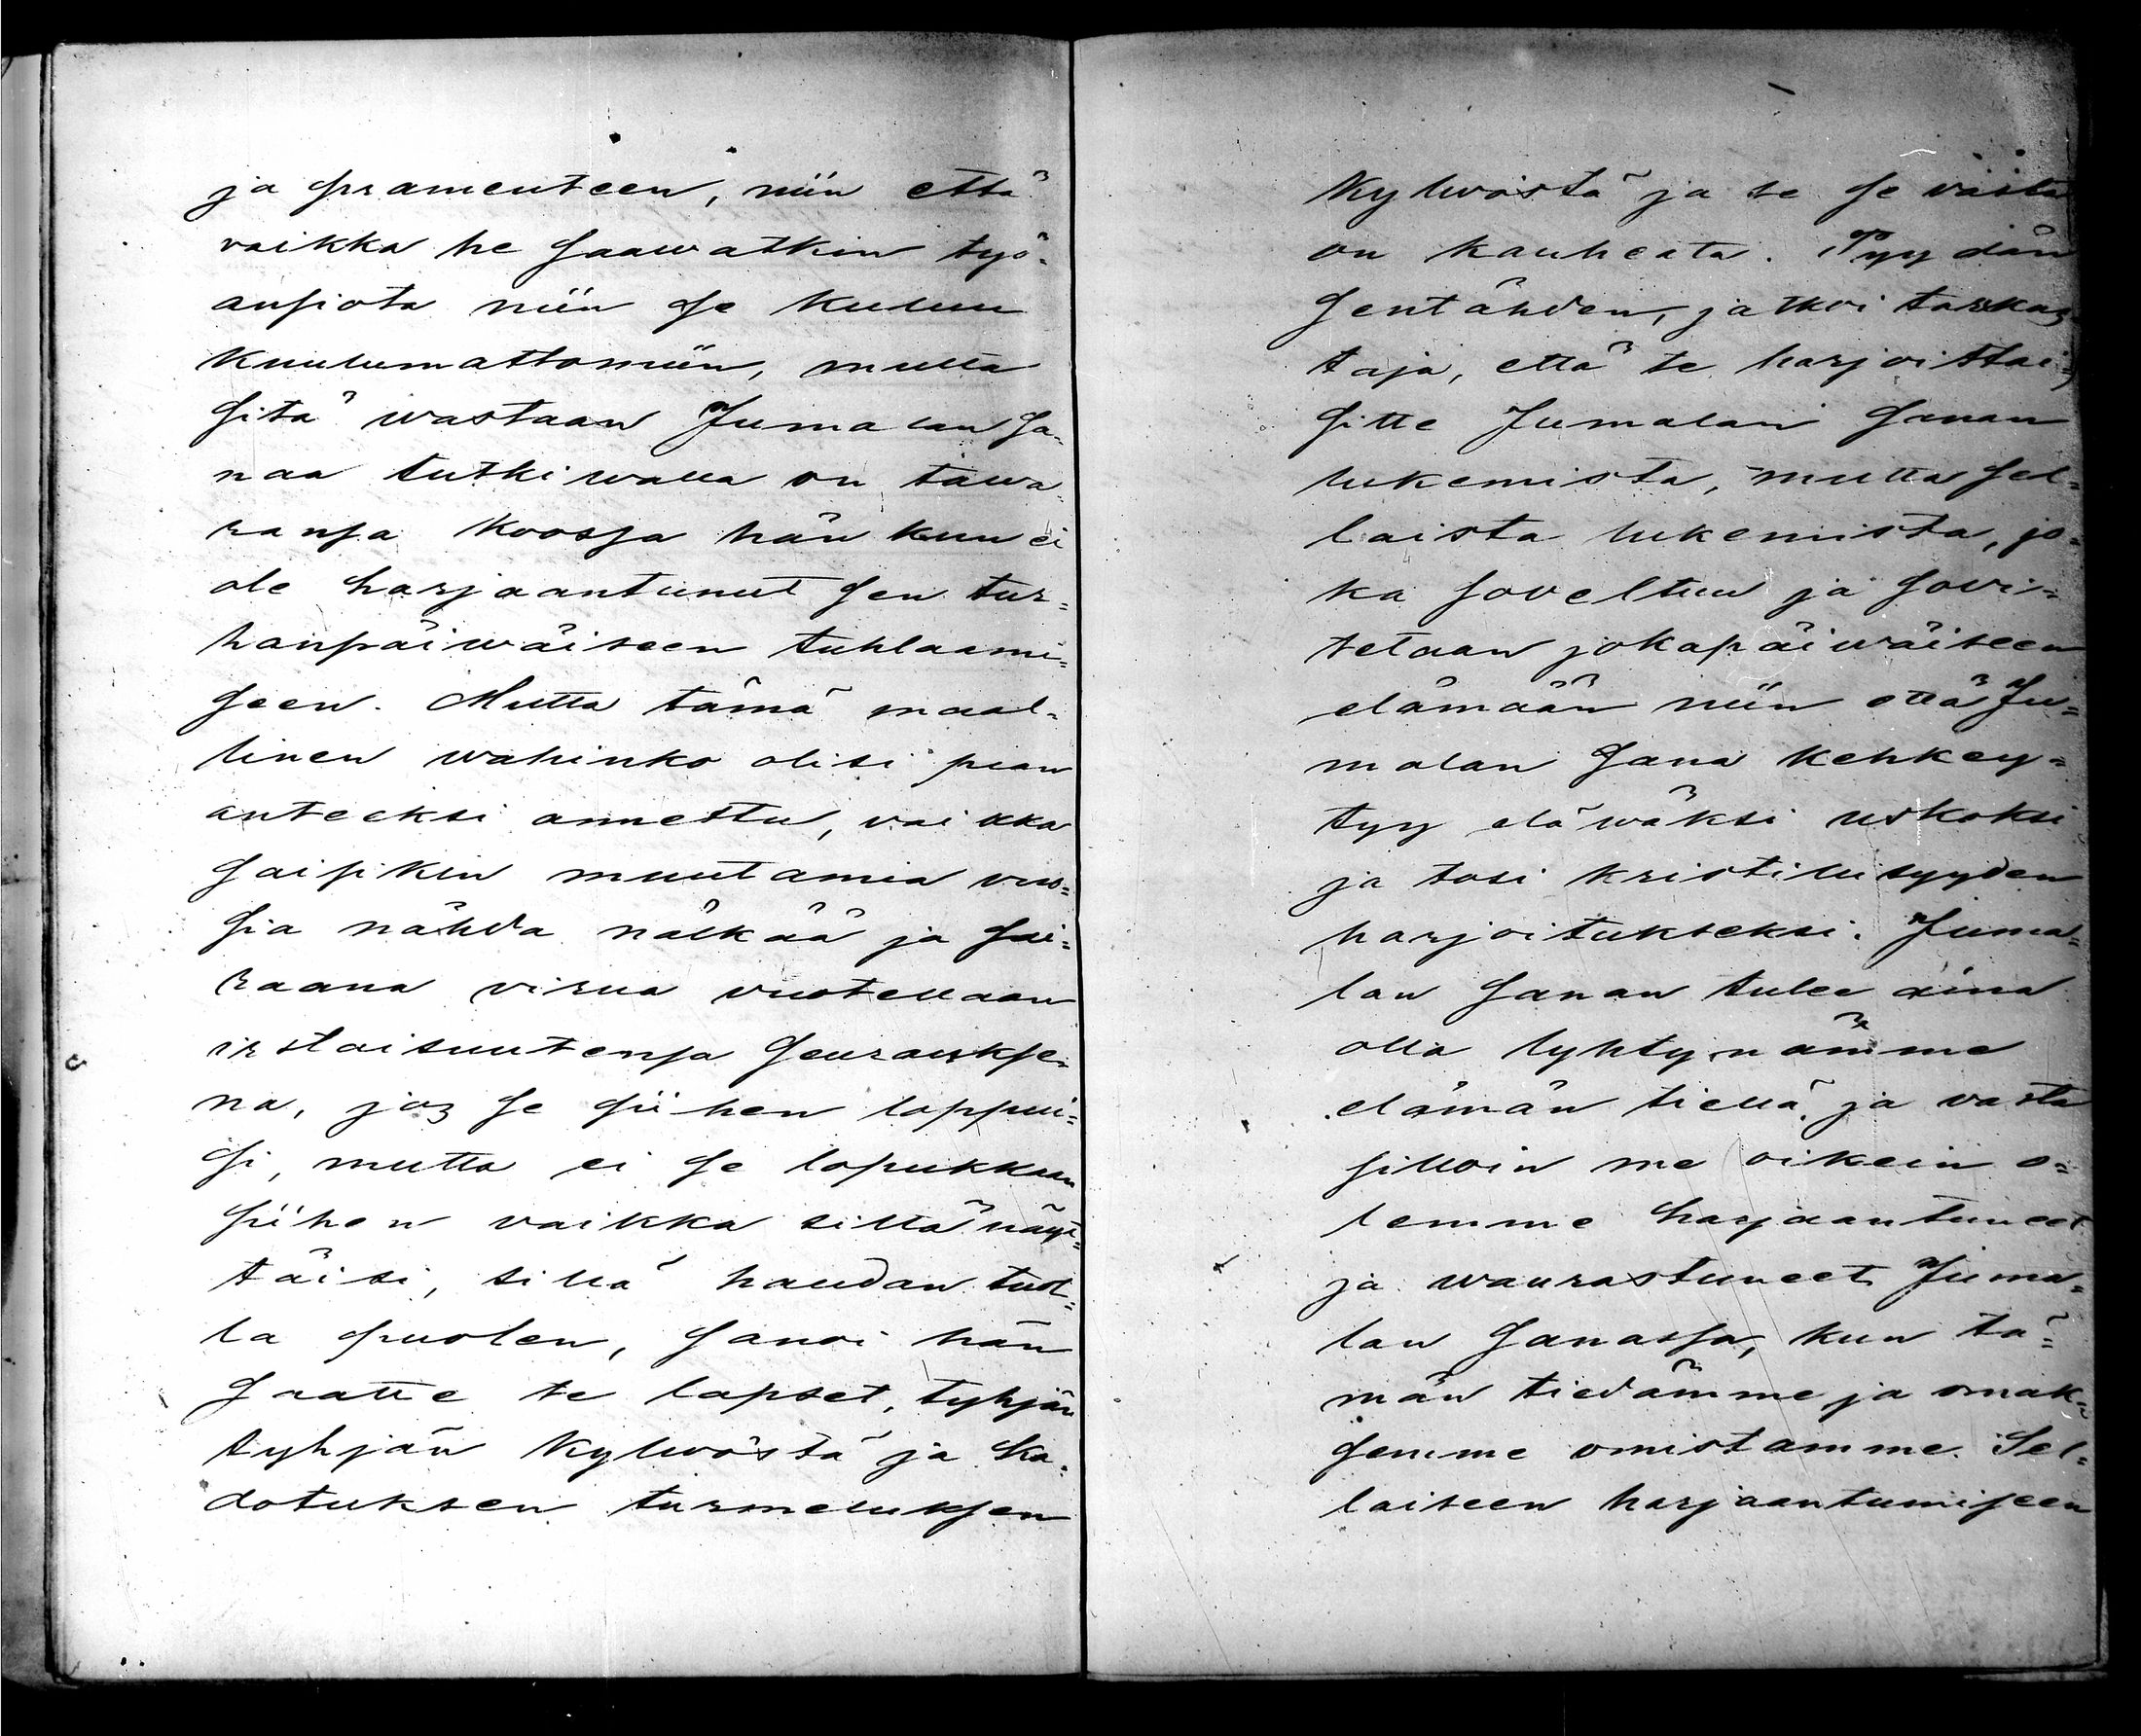 ja pramenteen, niin että
vaikka he saawatkin työ-
ansiota niin se kuluu
kuulumattomiin, mutta
sitä wastaan Jumalan sa-
naa tutkiwalla on tawa-
ransa koossa hän kun ei
ole harjaantunut sen tur=
hanpäiwäiseen tuhlaami=
seen. Mutta tämä maal-
linen wahinko olisi pian
anteeksi annettu, vaikka
saisikin muutamia vuo=
sia nähdä nälkää ja sai=
raana virua vuotellaan
irstaisuutensa seurauksse-
na, jos se siihen loppui=
si, mutta ei se lopukkaan
siihen vaikka siltä näyt=
täisi, sillä haudan tuol=
la puolen, sanoi hän
saatte te lapset, tyhjän
tyhjän kylwöstä ja ka-
dotuksen turmeluksen
kylwöstä ja se se vasta
on kauheata. Pyydän
sentähden, jatkoi tarkas-
taja, että te harjoittai=
sitte Jumalan sanan
lukemista, mutta sel=
laista lukemista, jo=
ka soveltuu ja sovi=
tetaan jokapäiwäiseen
elämään niin että Ju=
malan sana kehkey=
tyy eläwäksi uskoksi
ja tosi kristilisyyden
harjoitukseksi. Juma=
lan sanan tulee aina
olla lyhtynämme
elämän tiellä, ja vasta
silloin me oikein o=
lemme harjaantuneet
ja waurastuneet Juma=
lan sanassa, kun tä=
män tiedämme ja omak=
semme omistamme. Sel=
laiseen harjaantumiseen